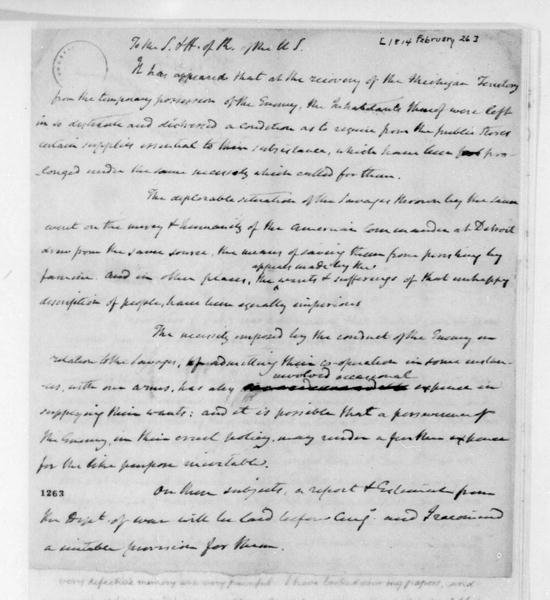 To the S. & H. of R. of the U S.
[1814 February 26]
It has appeared that at the recovery of the Michigan Territory
from the temporary possession of the Enemy, the Inhabitants thereof were left
in so destitute and distressed a condition as to require from the public Stores
certain supplies essential to their subsistence, which have been pro-
longed under the same necessity which called for them.
The deplorable situation of the Savages thrown by the same
event on the mercy & humanity of the American Commander at Detroit
drew from the same source, the means of saving them from perishing by
famine. And in other places, the
appeals made by the
wants & sufferings of that unhappy
description of people, have been equally imperious
The necessity imposed by the conduct of the Enemy in
relation to the Savages, of admitting their co-operation in some instan-
ces, with our arms, has also
involved occasional
expence in
supplying their wants: and it is possible that a perseverance of
the Enemy, in their cruel policy, may render a further expence
for the like purpose inevitable.
1263
On these subjects, a report & Estimate from
the Dept. of war will be laid before Cong. and I recommend
a suitable provision for them.
very defective memory are very painful. I have looked over my papers, and